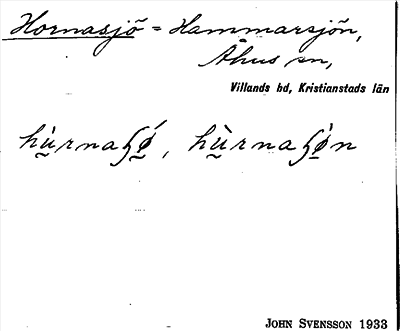 Hornasjö = Hammarsjön,
Åhus sn,
Villands hd, Kristianstads län
hù̮rnaʂǿ̮, hù̮rnaʂø̮̀n
JOHN SVENSSON 1933